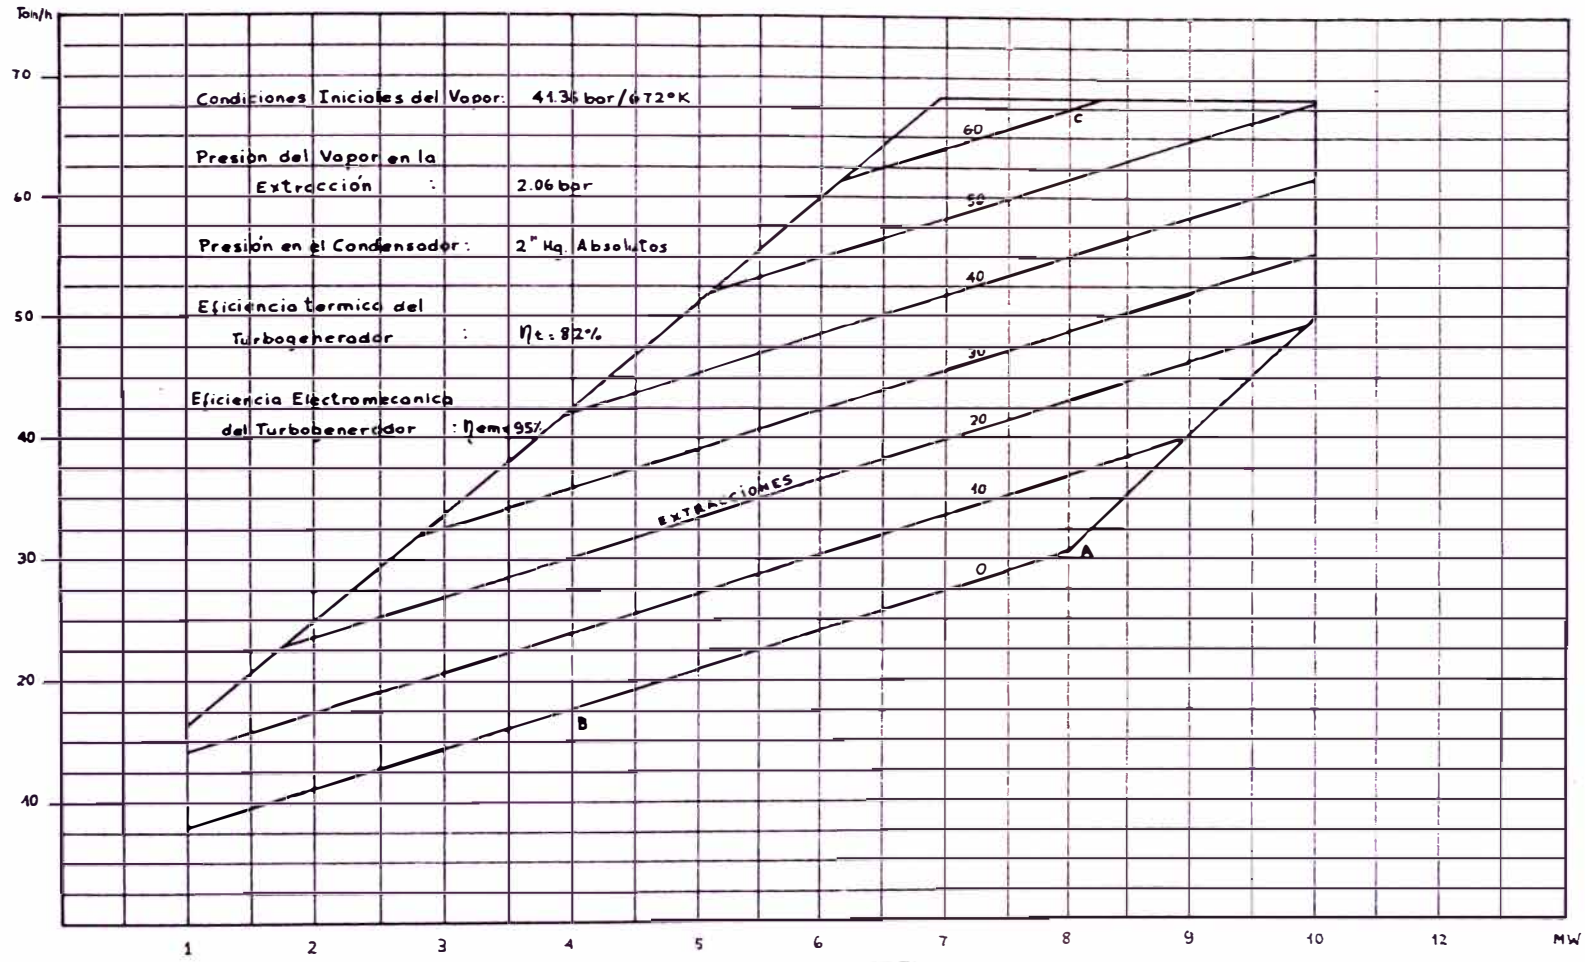 Ton/h
70
Condiciones Iniciales del Vapor: 41.36 bar/672°K
60
Presión del Vapor en la
Extracción : 2.06 bar
60
50
Presión en el Condensador: 2" Hg. Absolutos
40
Eficiencia termica del
50
Turbogenerador : ηt = 82%
30
Eficiencia Electromecanica
del Turbobenerador : ηem = 95%
20
40
EXTRACCIONES
10
30
0
20
10
A
B
C
1 2 3 4 5 6 7 8 9 10 12 MW